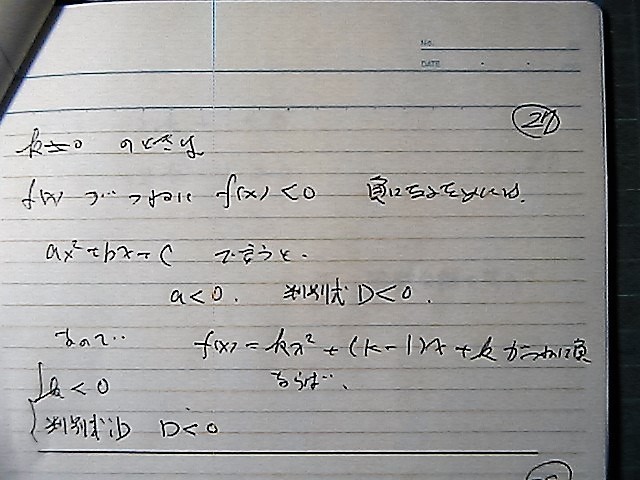 No.
DATE
27
k≠0 のときは
f(x) が つねに f(x) < 0 負になるためには、
ax²+bx+c で言うと、
a<0. 判別式 D<0.
なので… f(x) = kx² + (k-1)x + k がつねに負
ならば…
{ k < 0
{ 判別式D D<0